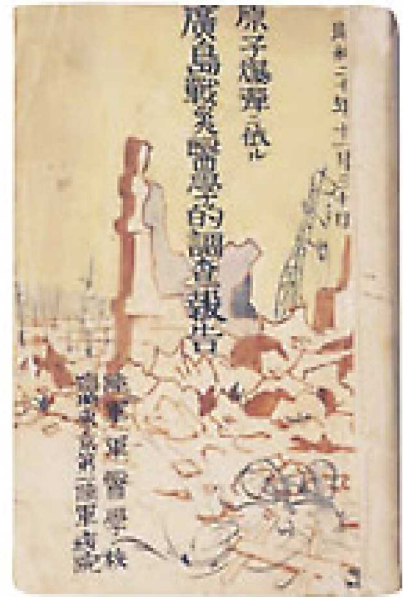 昭和二十年十一月三十日
原子爆彈ニ依ル
廣島戰災醫學的調査報告
陸軍軍醫學校
臨時東京第一陸軍病院